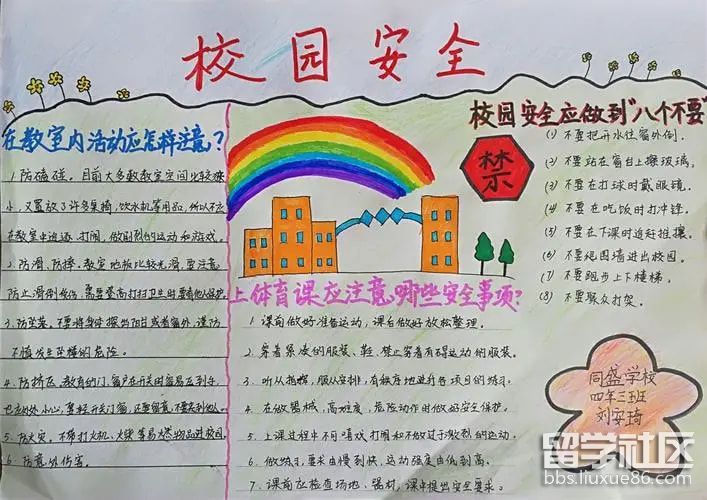 校园安全
在教室内活动应怎样注意?
1.防磕碰。目前大多数教室空间比较狭
小,又置放了许多桌椅,饮水机等用品,所以不应
在教室中追逐、打闹,做剧烈的运动和游戏。
2.防滑、防摔。教室地板比较光滑,要注意
防止滑倒受伤;需要登高打扫卫生时要有他人保护。
3.防坠落。不要将身体探出阳台或者窗外,谨防
不慎发生坠楼的危险。
4.防挤压。教室的门、窗户在开关时容易压到手,
也应处处小心,要轻开关门窗,还要留意,不要夹到他人。
5.防火灾。不带打火机、火柴等易燃物品进校园。
6.防意外伤害。
上体育课应注意哪些安全事项?
1.课前做好准备运动,课后做好放松整理。
2.穿着紧凑的服装、鞋,禁止穿着有碍运动的服装。
3.听从指挥,服从安排,有秩序地进行各项目的练习。
4.在做器械,高难度,危险动作时做好安全保护。
5.上课过程中不可嬉戏打闹和不做过于激烈的运动。
6.做练习,要求由慢到快,运动强度由低到高。
7.课前应检查场地、器材,课中提出安全要求。
校园安全应做到"八个不要"
禁
(1)不要把开水往窗外倒。
(2)不要站在窗台上擦玻璃。
(3)不要在打球时戴眼镜。
(4)不要在吃饭时打冲锋。
(5)不要在下课时追赶推攘。
(6)不要绕围墙进出校园。
(7)不要跑步上下楼梯。
(8)不要聚众打架。
同盛学校
四年三班
刘安琦
留学社区
bbs.liuxue86.com